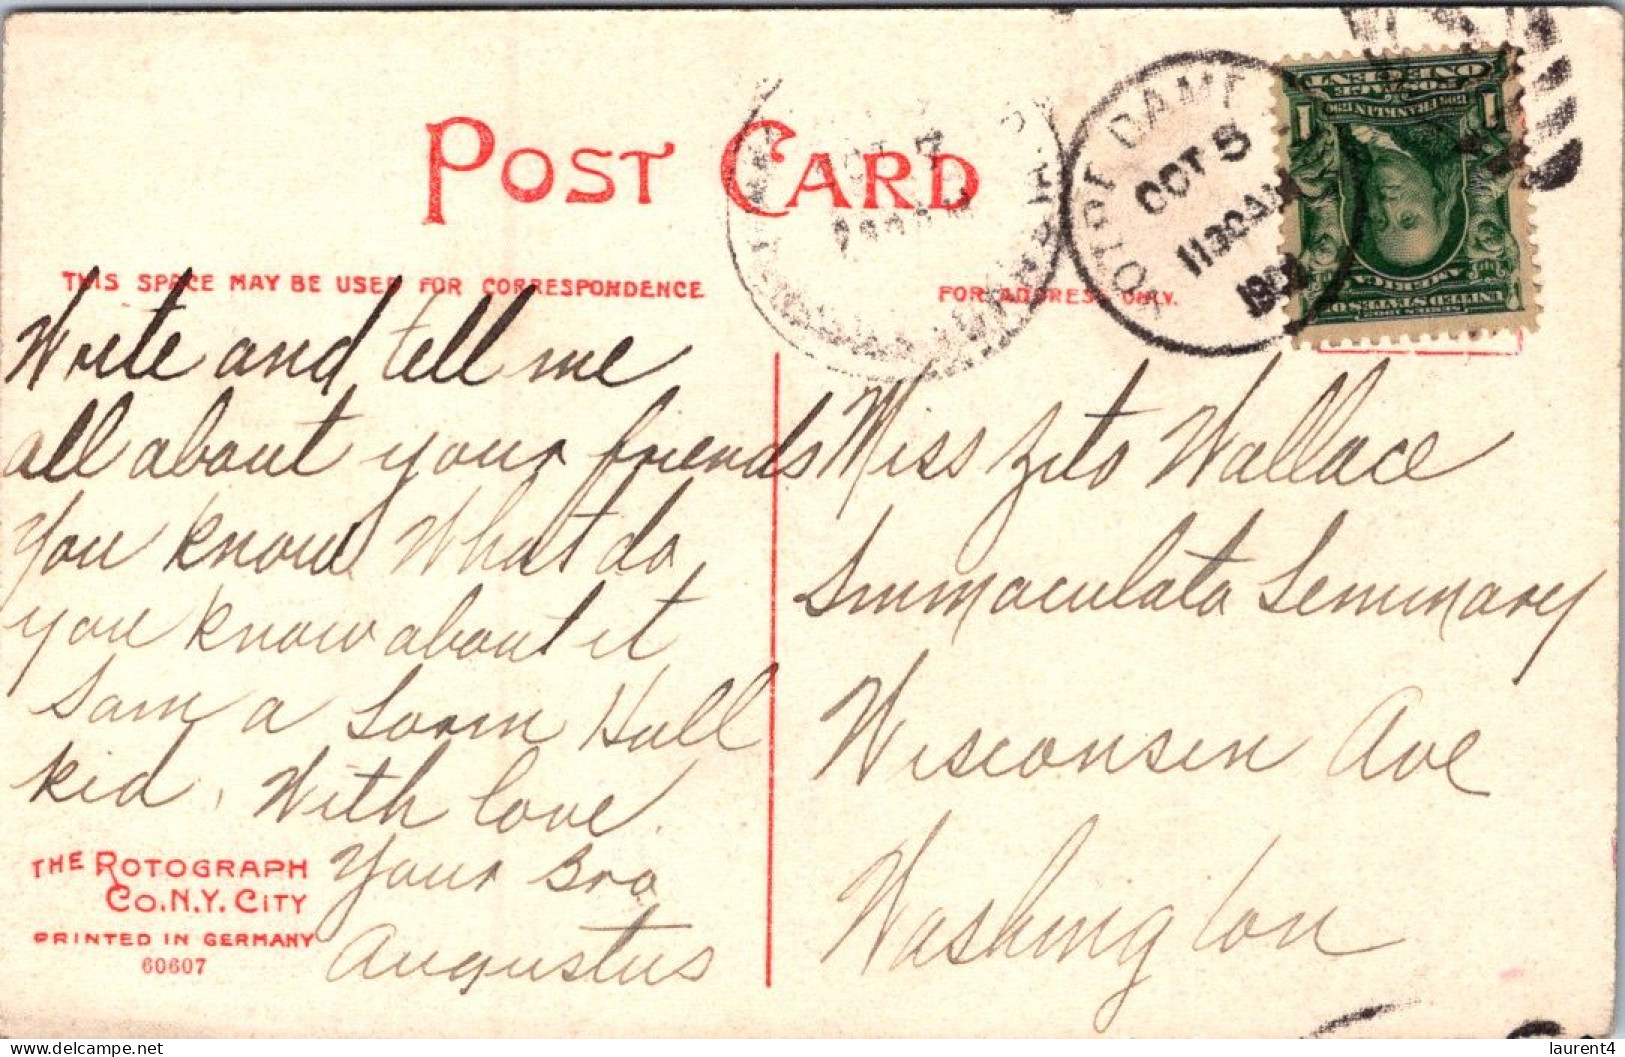 POST CARD
THIS SPACE MAY BE USED FOR CORRESPONDENCE
FOR ADDRESS ONLY.
NOTRE DAME
OCT 5
1130AM
OCT 7
Write and tell me
all about your friends
you know What do
you know about it
I am a Sorin Hall
kid, With love
Your Bro
Augustus
Miss Zita Wallace
Immaculata Seminary
Wisconsin Ave
Washington
THE ROTOGRAPH
CO. N.Y. CITY
PRINTED IN GERMANY
60607
SERIES 1902
UNITED STATES OF
AMERICA
FRANKLIN
POSTAGE
ONE CENT
1 1
laurent4